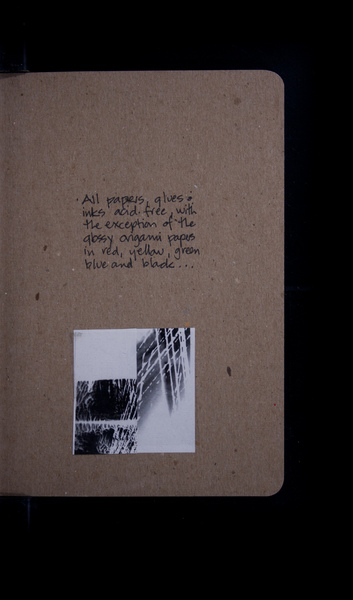 All papers, glues &
inks acid-free, with
the exception of the
glossy origami papers
in red, yellow, green
blue and black...